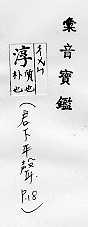 彙音寶鑑
ㄔㄨㄣˊ
淳 質也
朴也
(君下平聲
P.18)